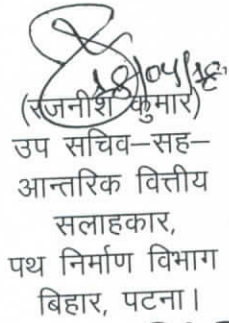 18/04/18
(रजनीश कुमार)
उप सचिव–सह–
आन्तरिक वित्तीय
सलाहकार,
पथ निर्माण विभाग
बिहार, पटना।